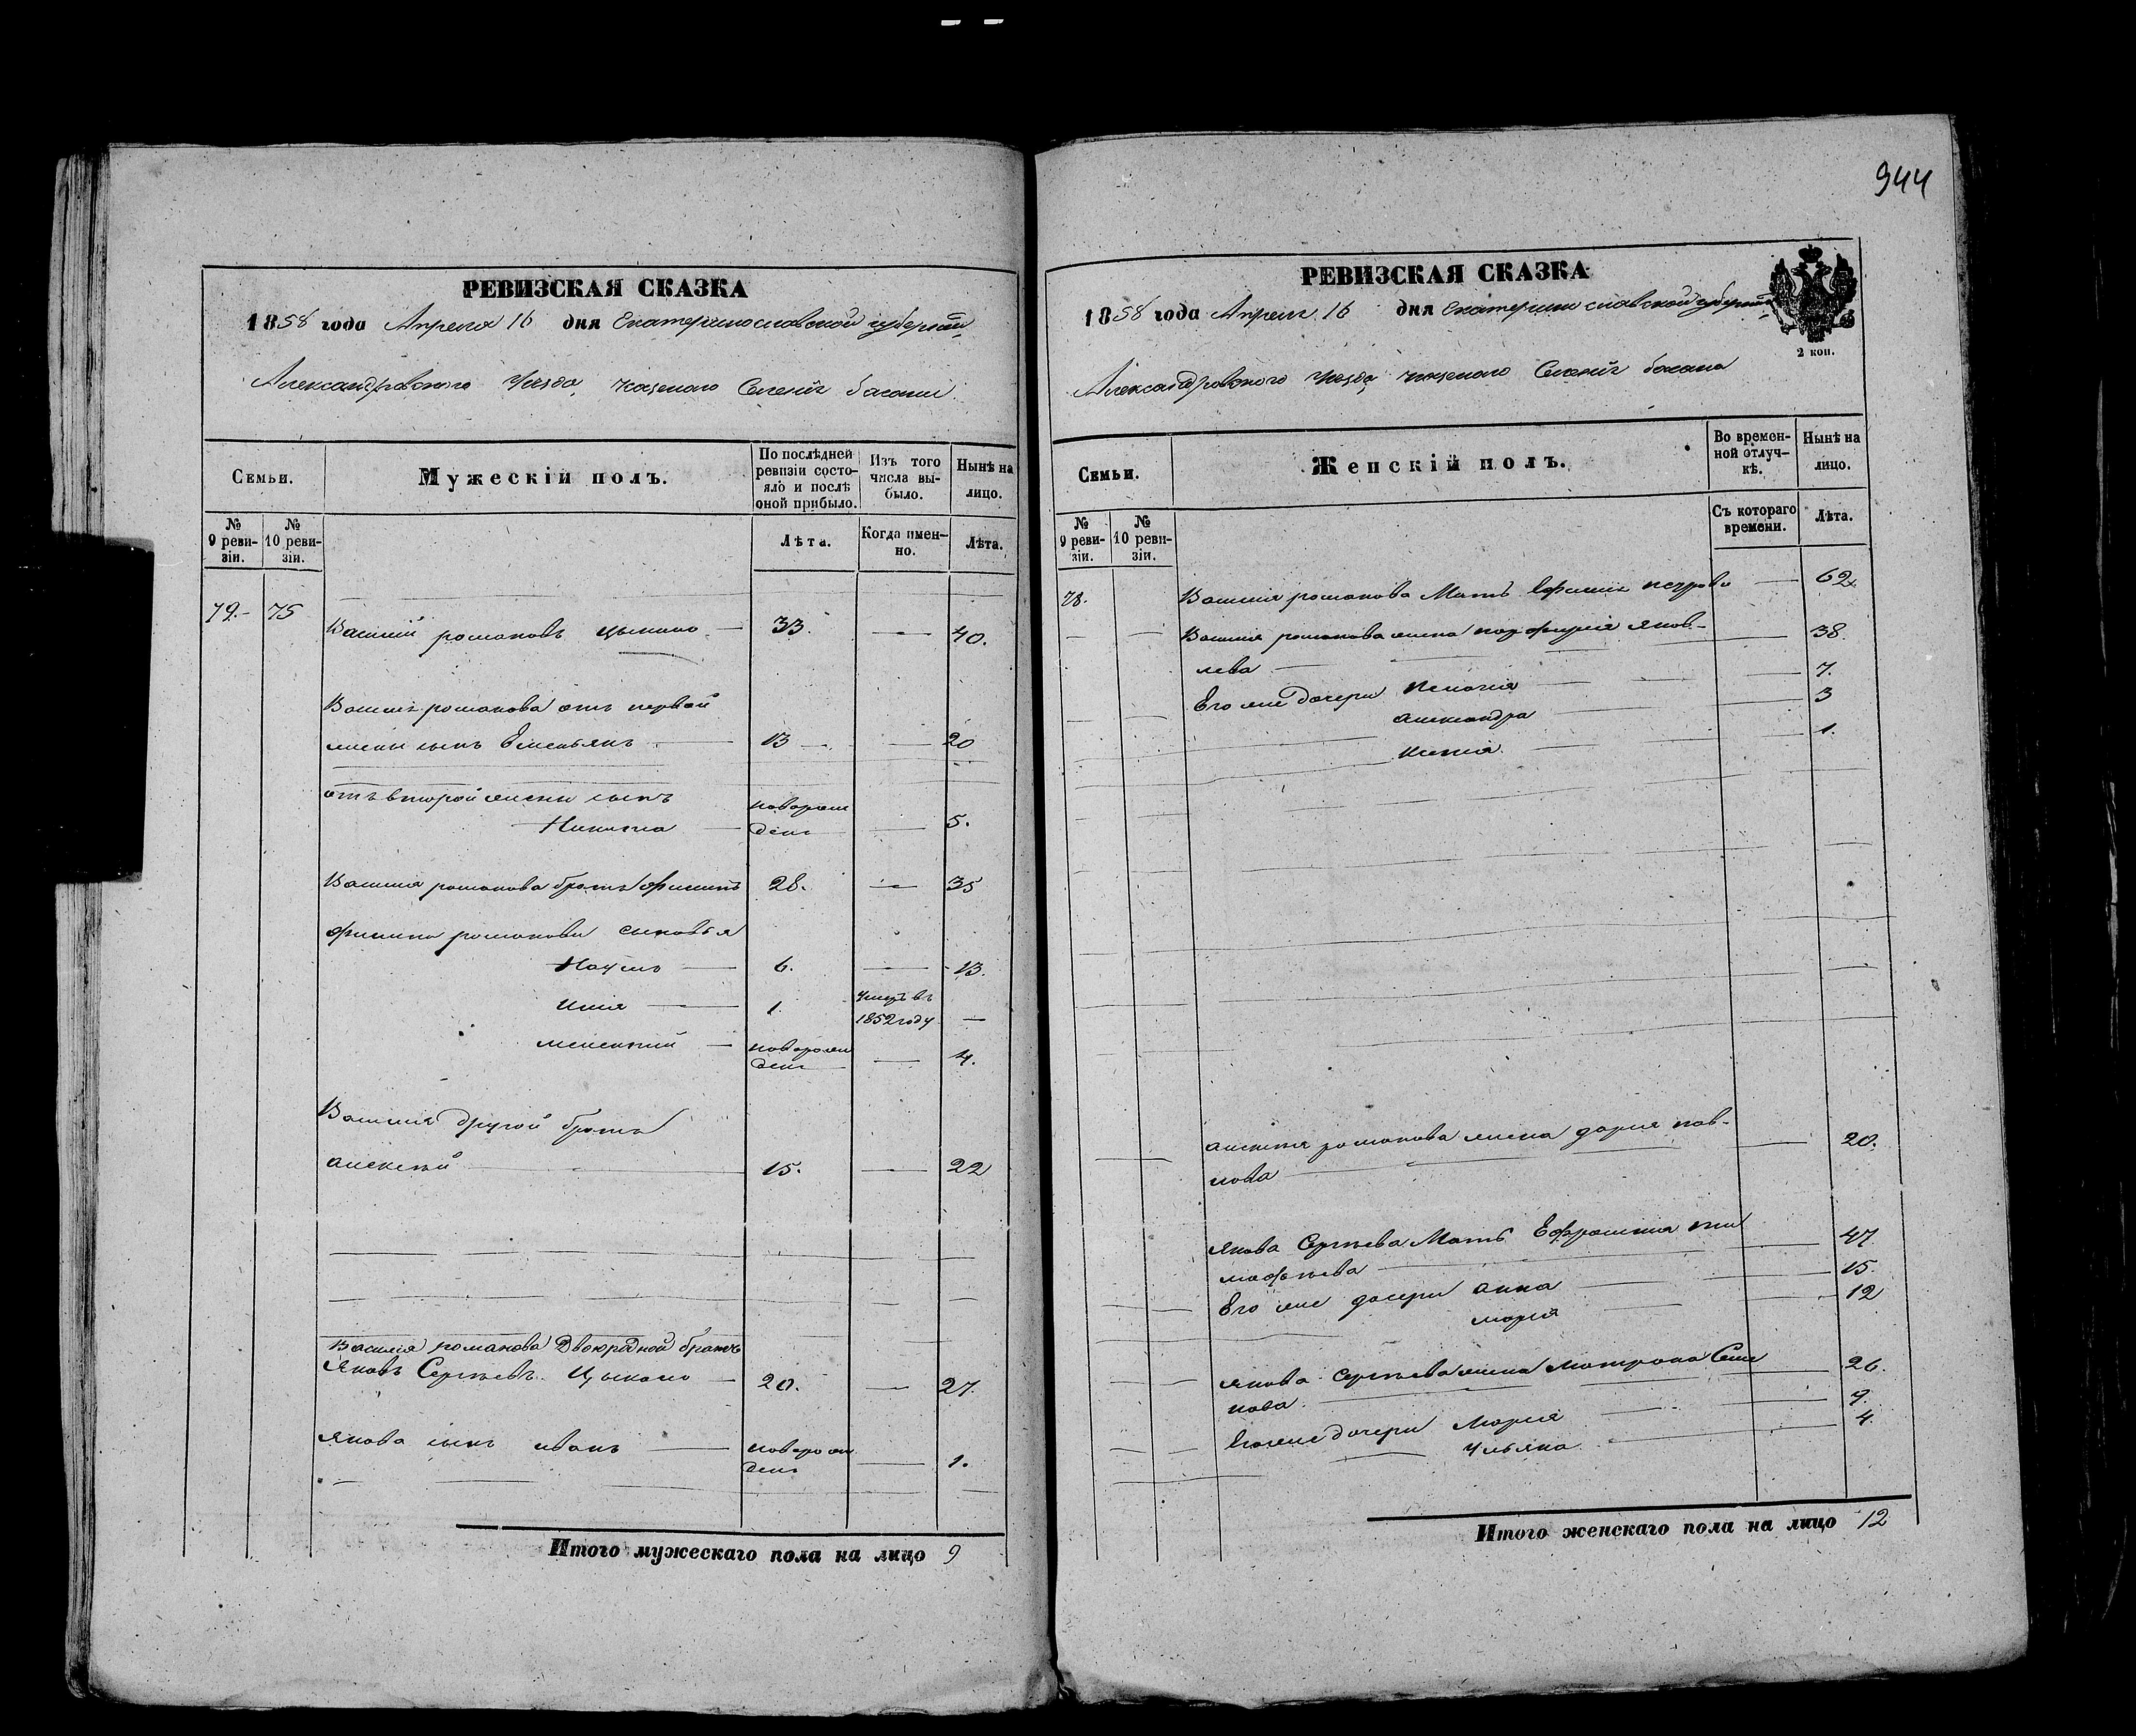 944
РЕВИЗСКАЯ СКАЗКА
1858 года Апреля 16 дня Екатеринославской губернии
Александровского Уѣзда, казеного Селенія басани
Семьи.
Мужескій полъ.
По послѣдней ревизіи состояло и послѣ оной прибыло.
Изъ того числа выбыло.
Нынѣ на лицо.
№ 9 ревизіи.
№ 10 ревизіи.
Лѣта.
Когда именно.
Лѣта.
79. 75 Василій романовъ 33. — 40.
Василія романова отъ первой
жены сынъ Емельянъ 13 — 20
отъ второй жены сынъ
Никита новорожденъ — 5.
Василія романова братъ Филипъ 28. — 35
Филипа романова сыновья
Наумъ 6. — 13.
Илія 1. умеръ въ 1852 году —
новорожденъ — 4.
Василія другой братъ
алексѣй 15. — 22
Василія романова Двоюрдной братъ
Яковъ Сергѣевъ Цыкало 20. — 27.
Якова сынъ иванъ новорожденъ — 1.
Итого мужескаго пола на лицо 9
РЕВИЗСКАЯ СКАЗКА
1858 года Апреля 16 дня Екатеринославской губерніи
2 коп.
Александровского Уѣзда казеного Селенія басани
Семьи.
Женскій полъ.
Во временной отлучкѣ.
Нынѣ на лицо.
№ 9 ревизіи.
№ 10 ревизіи.
Съ котораго времени.
Лѣта.
78. Василия романова Мать петрова — 62
Василия романова жена порфирія яков-
лева — 38.
Его же Дочери — 7.
александра — 3
ксенія — 1.
алексѣя романова жена дария пав-
лова — 20.
якова Сергѣева Мать Ефросинія ти
мофѣева — 47
Его же дочери анна — 15.
марія — 12
якова Сергѣева жена матрона Семе
нова — 26.
Его же дочери Марія — 7.
Ульяна — 4.
Итого женскаго пола на лицо 12